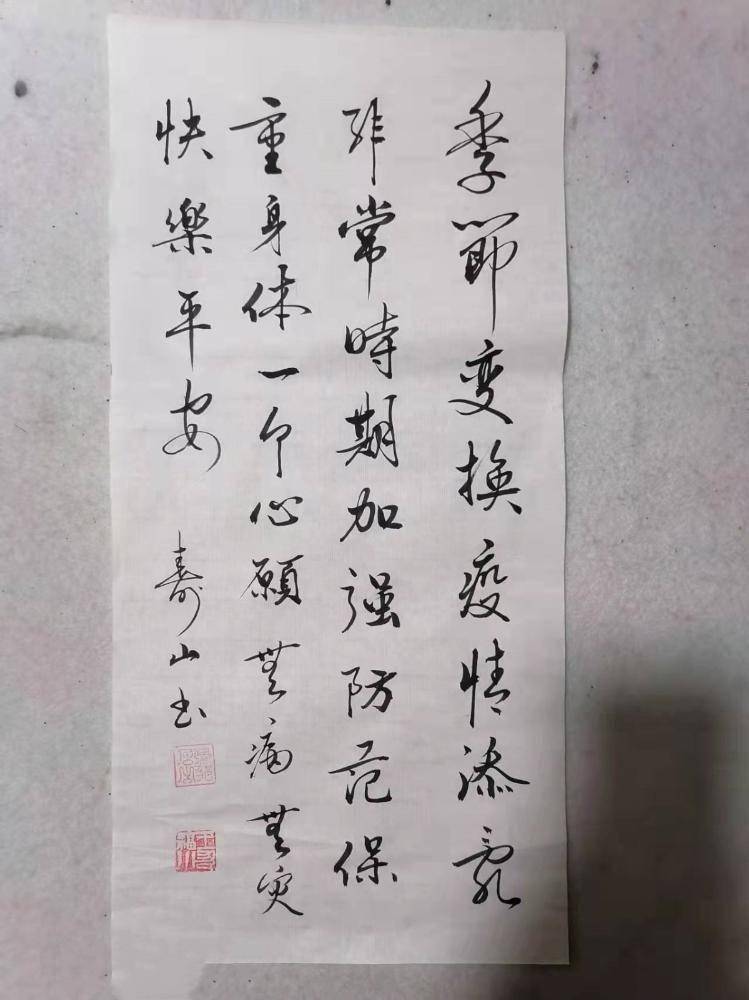 季節变换疫情添亂
非常時期加强防范保
重身体一个心願無病無灾
快樂平安
壽山书